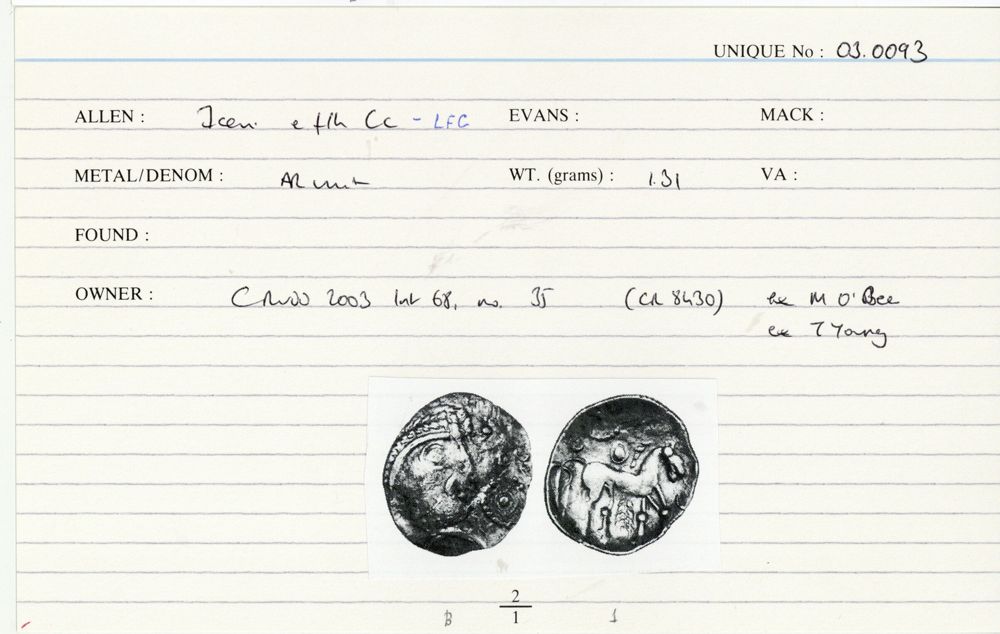 UNIQUE No : 03.0093
ALLEN : Iceni e f/h Cc - LFC EVANS : MACK :
METAL/DENOM : AR unit WT. (grams) : 1.31 VA :
FOUND :
OWNER : 2003 list 68, no. 35 (CR 8430) ex M O'Bee
ex T Young
2
B 1 1